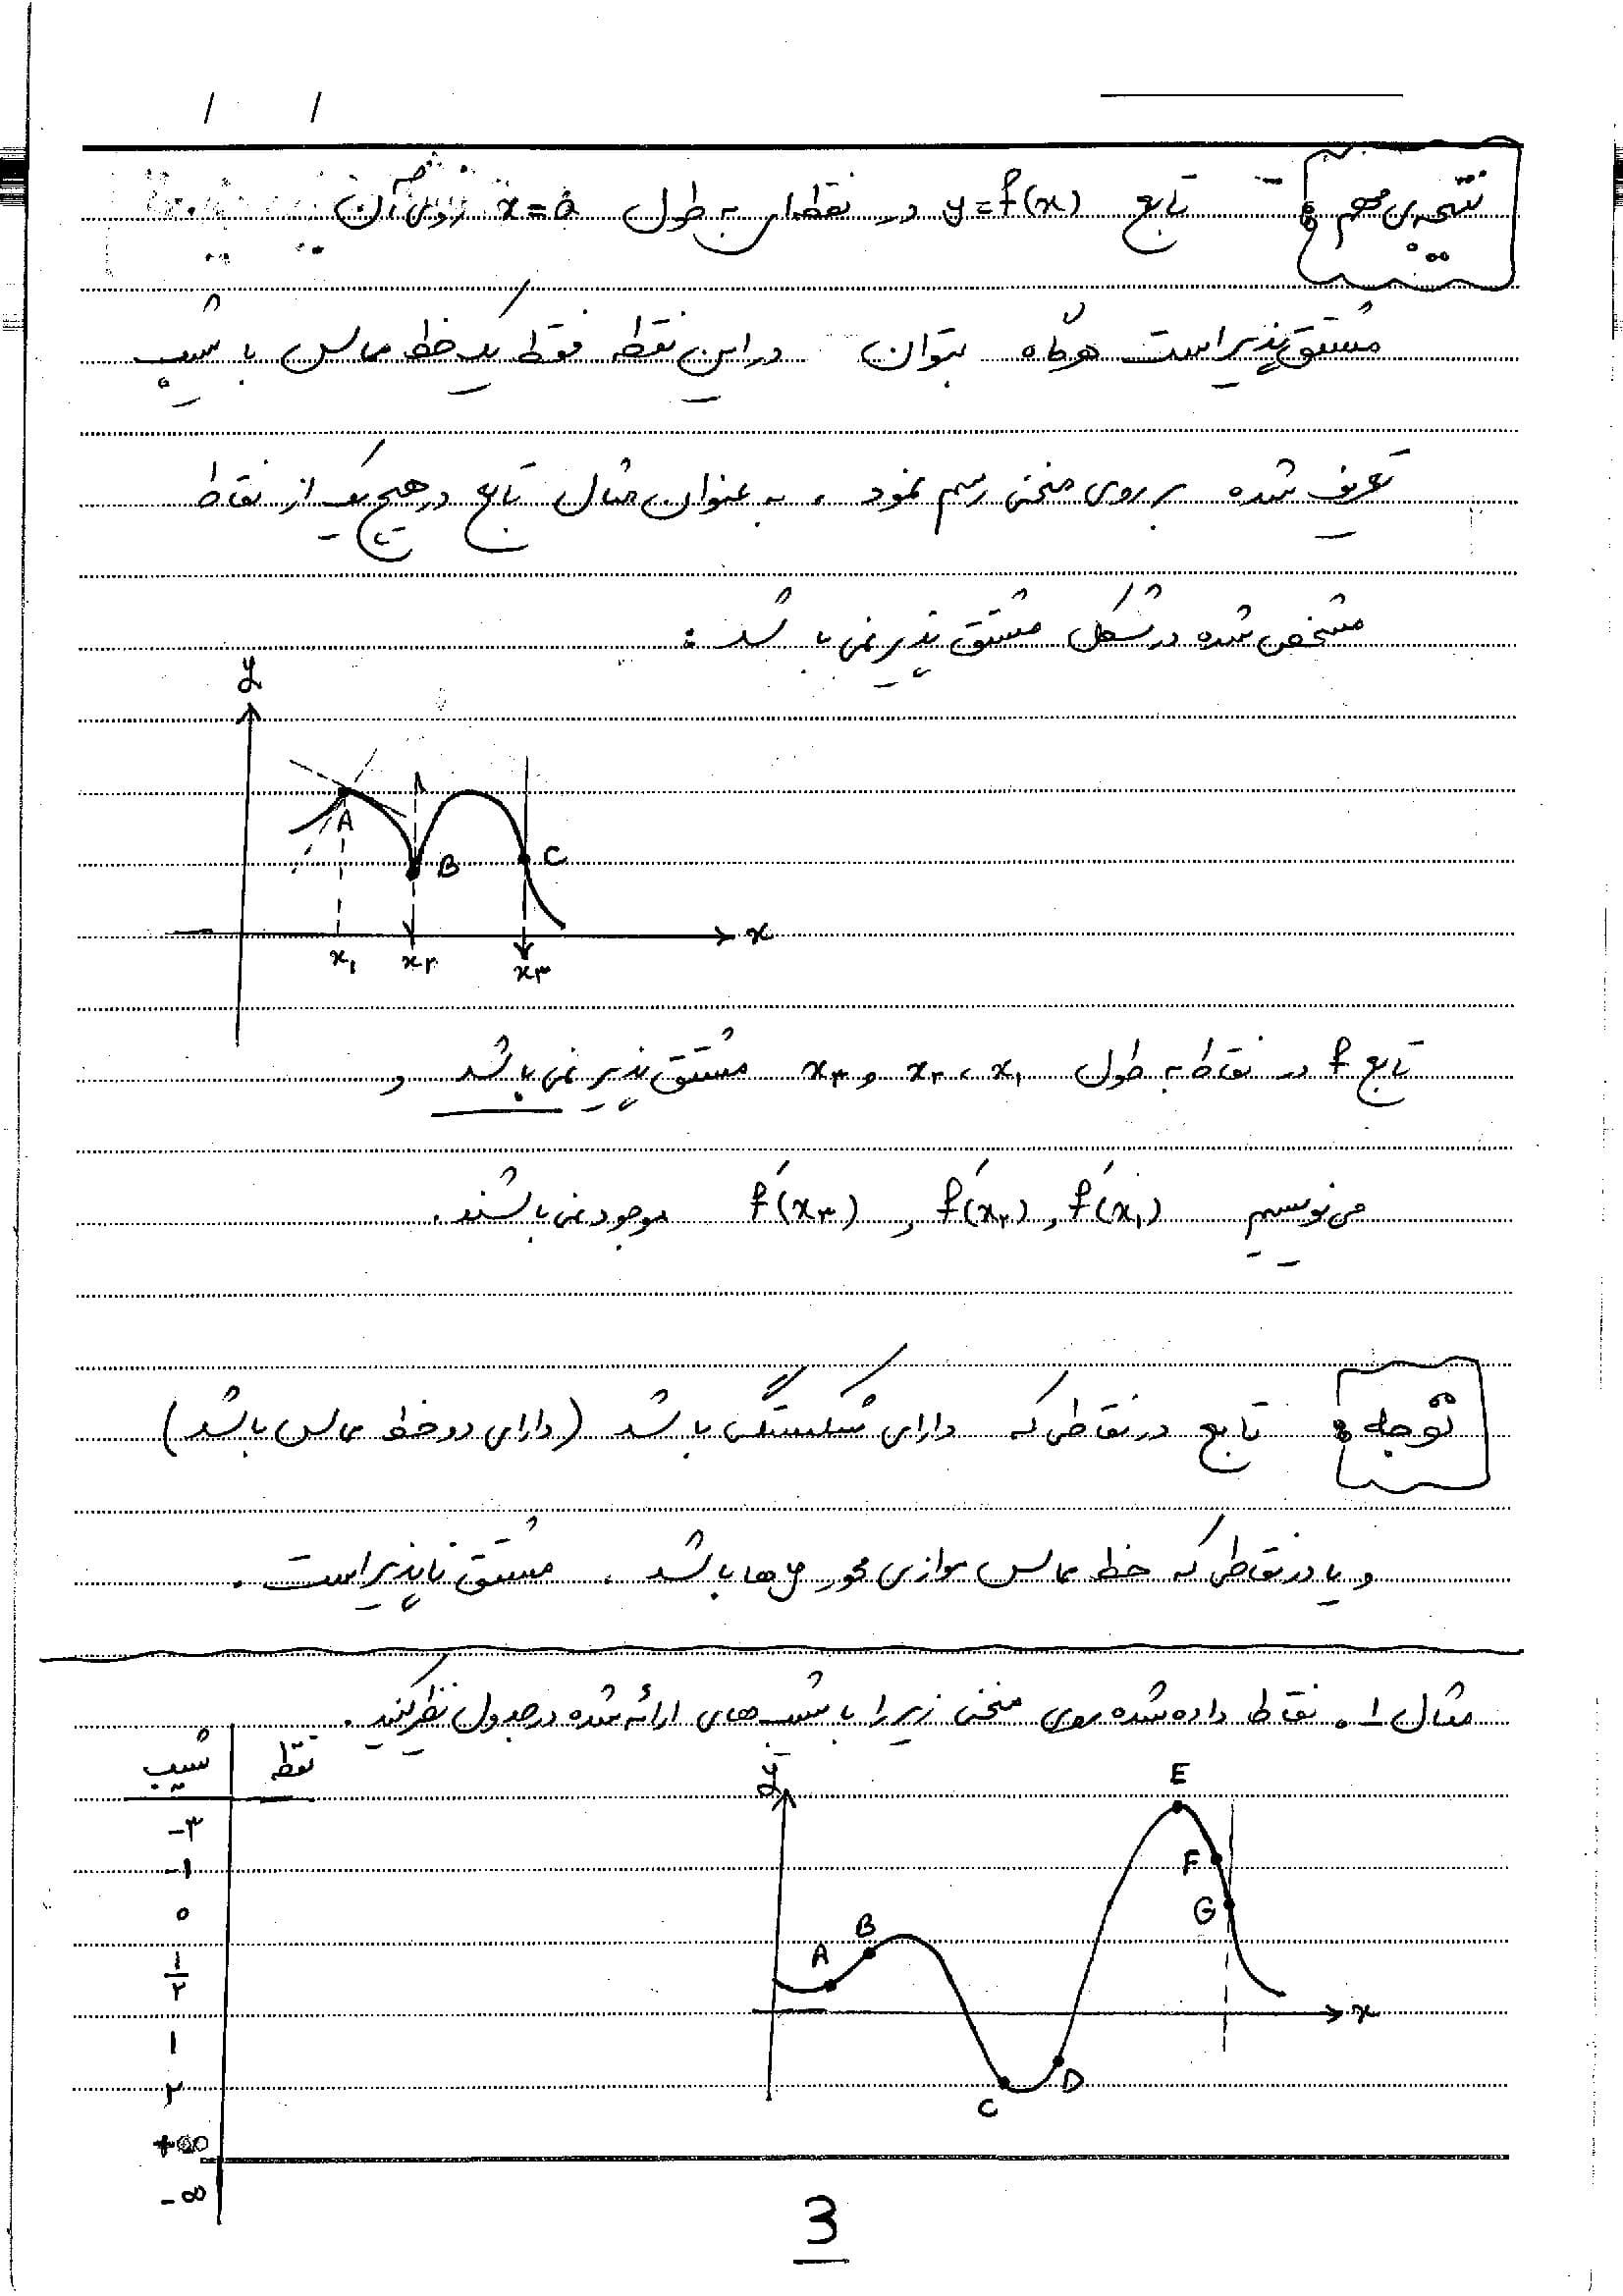 نتیجه‌ی مهم : تابع y=f(x) در نقطه‌ای به طول x=a روی آن
مشتق‌پذیر است هرگاه بتوان در این نقطه فقط یک خط مماس با شیب
تعریف شده بر روی منحنی رسم نمود ، به عنوان مثال تابع در هیچ یک از نقاط
مشخص شده در شکل مشتق پذیر نمی باشد :
y
A
B
C
x
x۱ x۲ x۳
تابع f در نقاط به طول x۱ ، x۲ و x۳ مشتق پذیر نمی باشد و
می نویسیم f′(x۱) , f′(x۲) , f′(x۳) موجود نمی باشند .
توجه : تابع در نقاطی که دارای شکستگی باشد (دارای دو خط مماس باشد)
و یا در نقاطی که خط مماس موازی محور yها باشد ، مشتق ناپذیر است .
مثال ۱ . نقاط داده شده روی منحنی زیر را با شیب های ارائه شده در جدول نظیر کنید .
نقطه شیب
-۳
-۱
۰
۱/۲
۱
۲
+∞
-∞
y
E
F
G
B
A
x
D
C
3